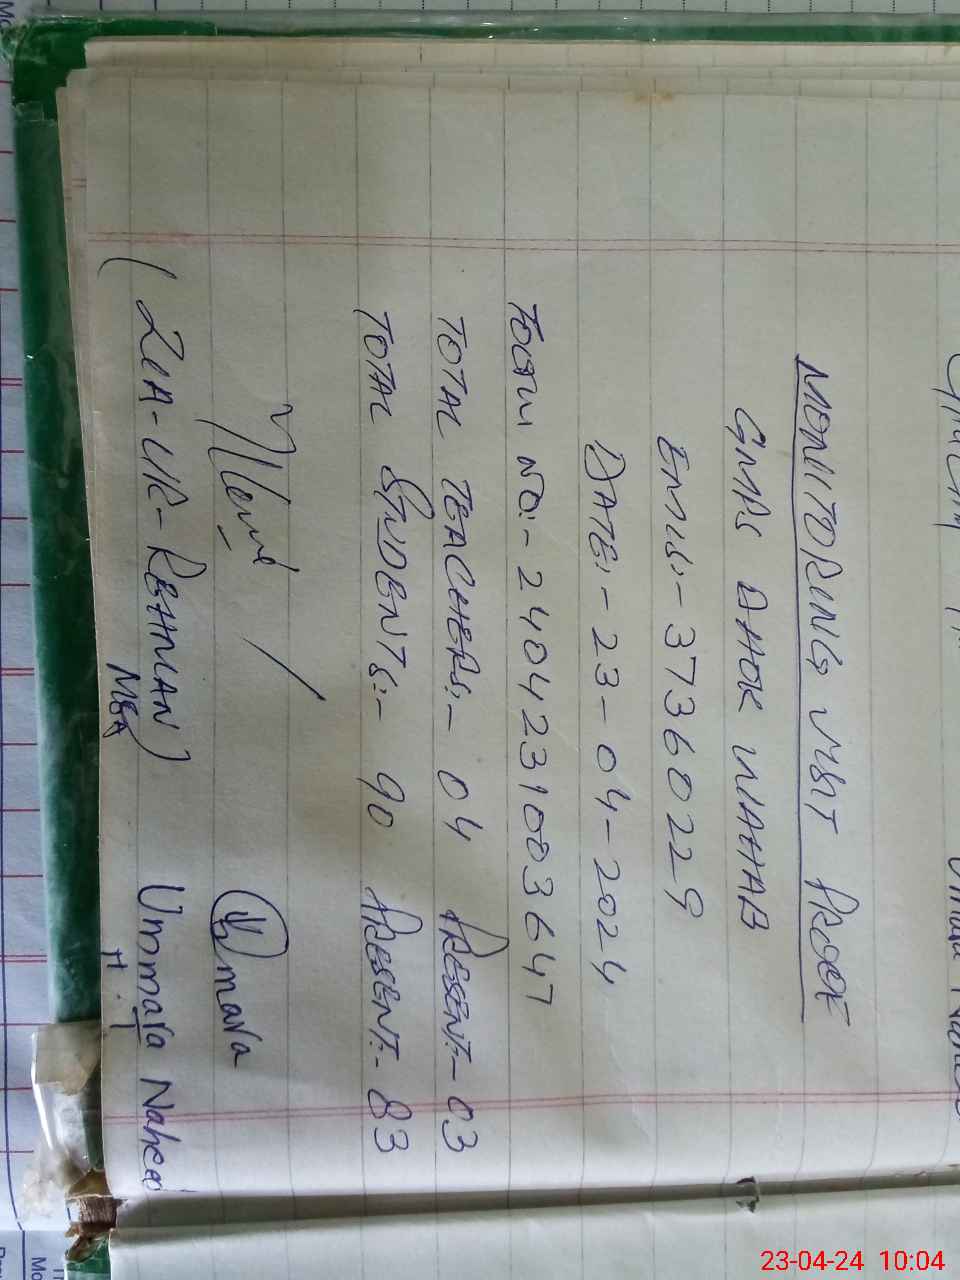 MONITORING VISIT PROOF
GMPS DHOK WAHAB
EMIS:- 37360229
DATE:- 23-04-2024
FORM NO:- 2404231003647
TOTAL TEACHERS:- 04 PRESENT:- 03
TOTAL STUDENTS:- 90 PRESENT:- 83
Ummara
(ZIA-UR-REHMAN) Ummara Naheed
MEA H.T
23-04-24 10:04